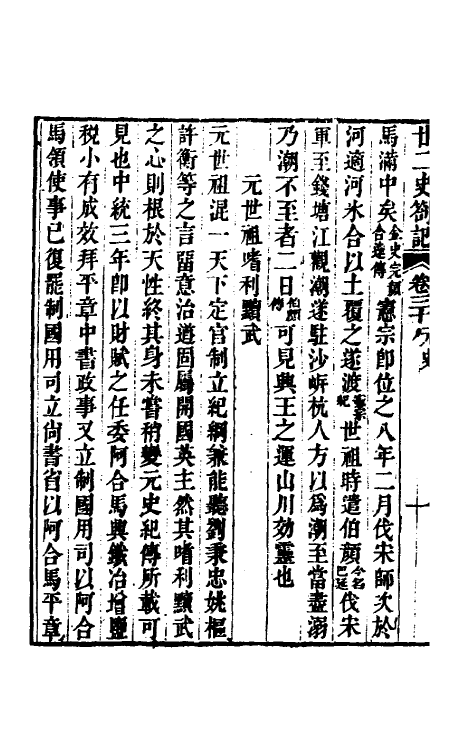 廿二史劄記 卷三十 元史 十
馬滿中矣金史完顏合達傳憲宗卽位之八年二月伐宋師次於
河適河氷合以土覆之遂渡憲宗紀世祖時遣伯顏今名巴延伐宋
軍至錢塘江觀潮遂駐沙岍杭人方以爲潮至當盡溺
乃潮不至者二日伯顏傳可見興王之運山川効靈也
元世祖嗜利黷武
元世祖混一天下定官制立紀綱兼能聽劉秉忠姚樞
許衡等之言留意治道固屬開國英主然其嗜利黷武
之心則根於天性終其身未嘗稍變元史紀傳所載可
見也中統三年卽以財賦之任委阿合馬興鐵冶增鹽
稅小有成效拜平章中書政事又立制國用司以阿合
馬領使事已復罷制國用司立尚書省以阿合馬平章